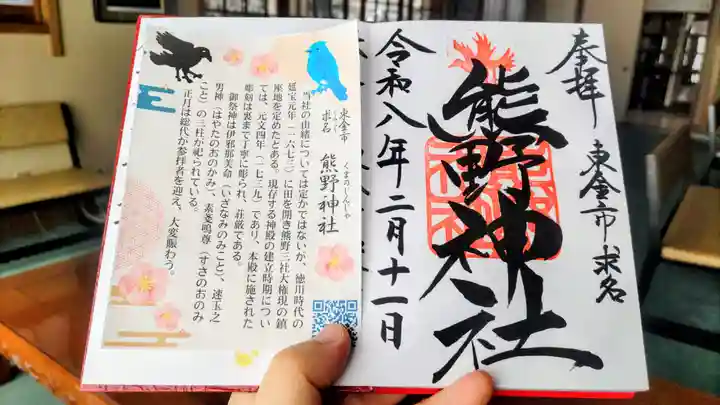 奉拝
東金市求名
熊野神社
令和八年二月十一日
東金市
求名
くまのじんじゃ
熊野神社
当社の由緒については定かではないが、徳川時代の
延宝元年（一六七三）に田を開き熊野三社大権現の鎮
座地を定めたとある。現存する神殿の建立時期につい
ては、元文四年（一七三九）であり、本殿に施された
彫刻は裏まで丁寧に彫られ、荘厳である。
御祭神は伊邪那美命（いざなみのみこと）、速玉之
男神（はやたのおのかみ）、素戔嗚尊（すさのおのみ
こと）の三柱が祀られている。
正月は総代が参拝者を迎え、大変賑わう。